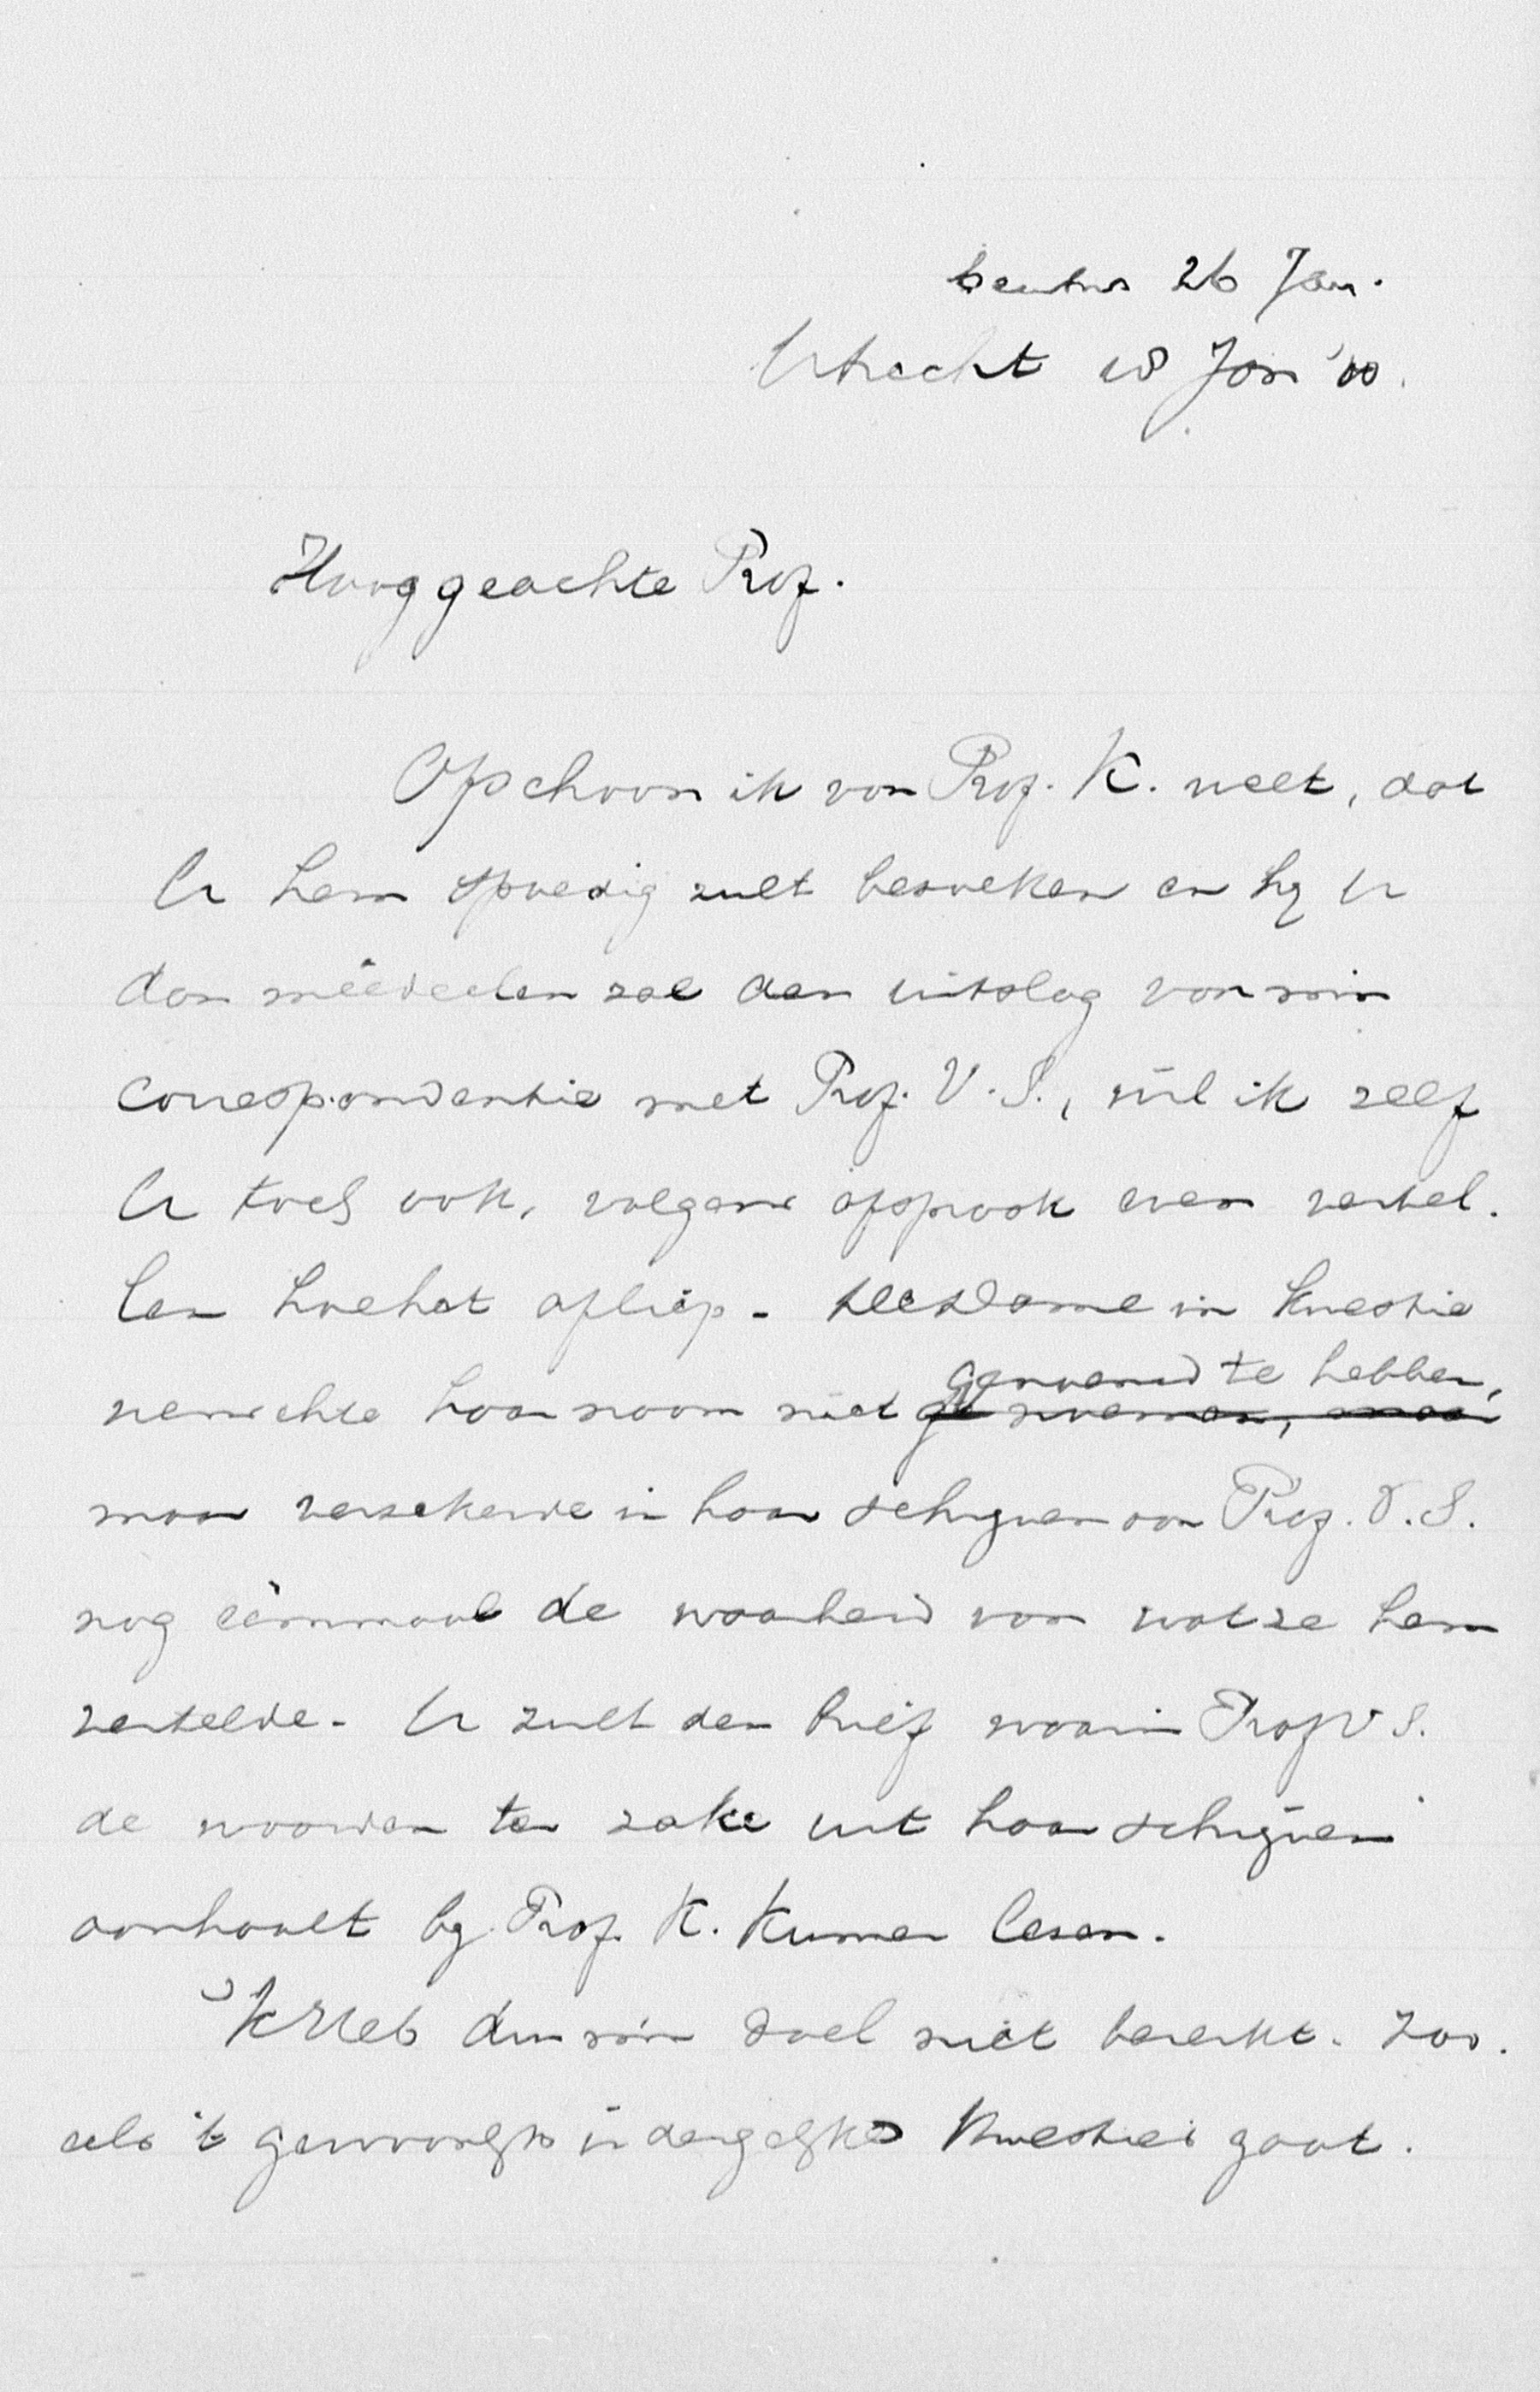 26 Jan.
Utrecht 18 Jan '00.
Hooggeachte Prof.
Ofschoon ik van Prof. K. weet, dat
U hem spoedig zult bezoeken en hij U
dan méédeelen zal den uitslag van mijn
correspondentie met Prof. V. S., wil ik zelf
U toch ook, volgens afspraak even vertel-
len hoe het afliep. De Dame in kwestie
wenschte haar naam niet genoemd te hebben,
maar verzekerde in haar schrijven aan Prof. V. S.
nog éénmaal de waarheid van wat ze hem
vertelde. U zult den brief waarin Prof V S.
de woorden ter zake uit haar schrijven
aanhaalt bij Prof. K. kunnen lezen.
Ik heb dus mijn doel niet bereikt. Zoo-
als 't gewoonlijk in dergelijke kwesties gaat.